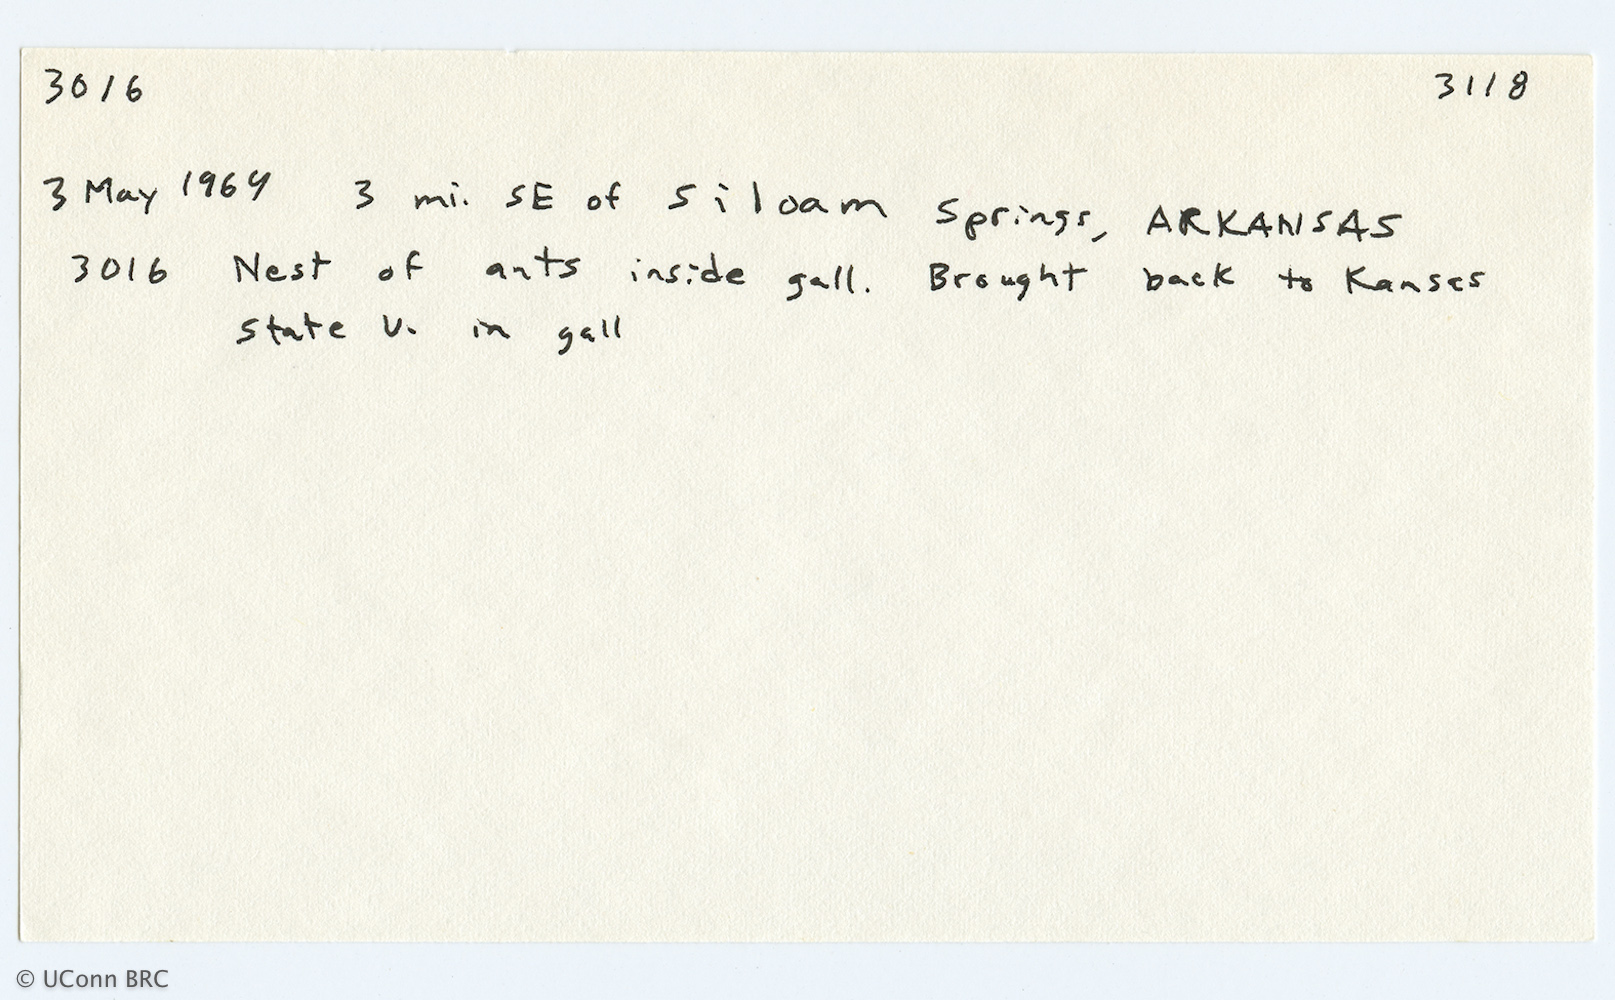 3016 3118
3 May 1964 3 mi. SE of Siloam Springs, ARKANSAS
3016 Nest of ants inside gall. Brought back to Kansas
state U. in gall
© UConn BRC